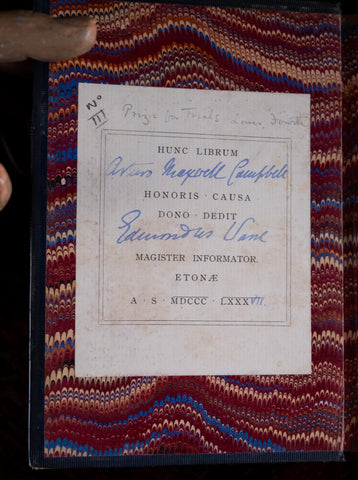 No
III
Prize for Trials
HUNC LIBRUM
Arturo Maxwell Campbell
HONORIS · CAUSA
DONO · DEDIT
Edmondus
MAGISTER INFORMATOR.
ETONÆ
A · S · MDCCC · LXXXVII.